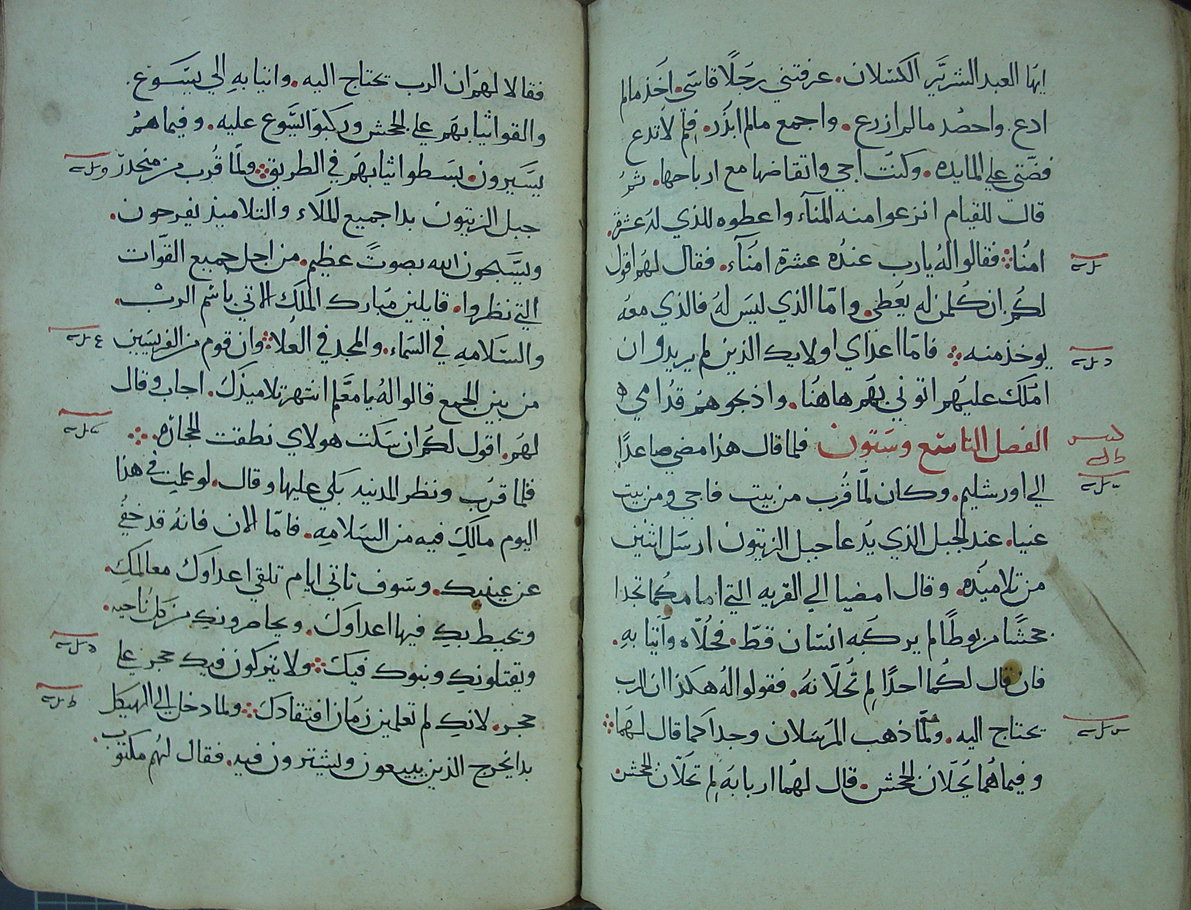 ايها العبد الشرير الكسلان. عرفتني رجلًا قاسي. اخذ مالم
ادع واحصد مالم ازرع. واجمع مالم ابذر. فلِم لا تدع
فضتي على المايده. وكنت اجي واتقاضها مع ارباحها. ثم
قال للقيام انزعوا منه المنآء واعطوه للذي له عشرة
امنًا. فقالوا له يارب عنده عشرة امنآء. فقال لهم اقول
لكم ان كلمن له يُعطي. وامّا الذي ليس لهُ فالذي معهُ
يوخذ منه. فامّا اعداي اولايك الذين لم يريدوا ان
املك عليهم اتوني بهم هاهنا. واذبحوهم قدامي
الفصل التاسع وستون. فلما قال هذا مضي صاعدًا
الي اورشليم. وكان لمّا قُرب من بيت فاجي ومن بيت
عنيا. عند الجبل الذي يُدعا جبل الزيتون ارسل اثنين
من تلاميذه. وقال امضيا الي القريه التي امامكما تجدا
جحشًا مربوطًا لم يركبه انسان قطّ. فحُلّاه وأتيا به.
فان قال لكما احدًا لِم تُحلّانه. فقولوا له هكذا ان الرب
يحتاج اليه. ولمّا ذهب المرسلان وجدا كما قال لهما
وفيما هُما يُحلّان الجحش. قال لهُما اربابه لِم تحلّان الجحش.
فقالا لهم ان الرب يحتاج اليه. واتيا به الي يسَوع.
والقوا ثيابهَم علي الجحش وركبوا اليسَوع عليه. وفيما همُ
يسَيرون. بسَطوا ثيابهَم في الطريق. ولمّا قُرب من منحدر
جبل الزيتون بدا جميع الملاء والتلاميذ يفرحون.
ويسَبحون الله بصوتً عظيم. من اجل جميع القوّات
التي نظروا. قايلين مَبارك الملك الاتي باسَم الربْ.
والسَلامه في السَماء. والمجد في العُلا. وان قوم من الفريسَيين
من بين الجمع قالوا له يا معَلم انتهر تلاميذك. اجاب وقال
لهم. اقول لكم ان سَكت هولاي نطقت الحجاره.
فلما قرُب ونظر المدنيه بكي عليها وقال. لو علمت في هذا
اليوم مالكِ فيه من السَلامه. فامّا الان فانهُ قد خفي
عن عينيك. وسَوف تاتي ايام تلقي اعداوك معالمك.
ويحيط بكِ فيها اعداوك. ويحاصرونكِ من كل ناحيه.
ويقتلونكِ وبنوك فيك. ولا يتركون فيك حجر علي
حجر. لانكِ لم تعلمين زمان افتقادك. ولما دخل الي الهيكل
بدا يُخرج الذين يبيعون ويشترون فيه. فقال لهُم مكتوب.